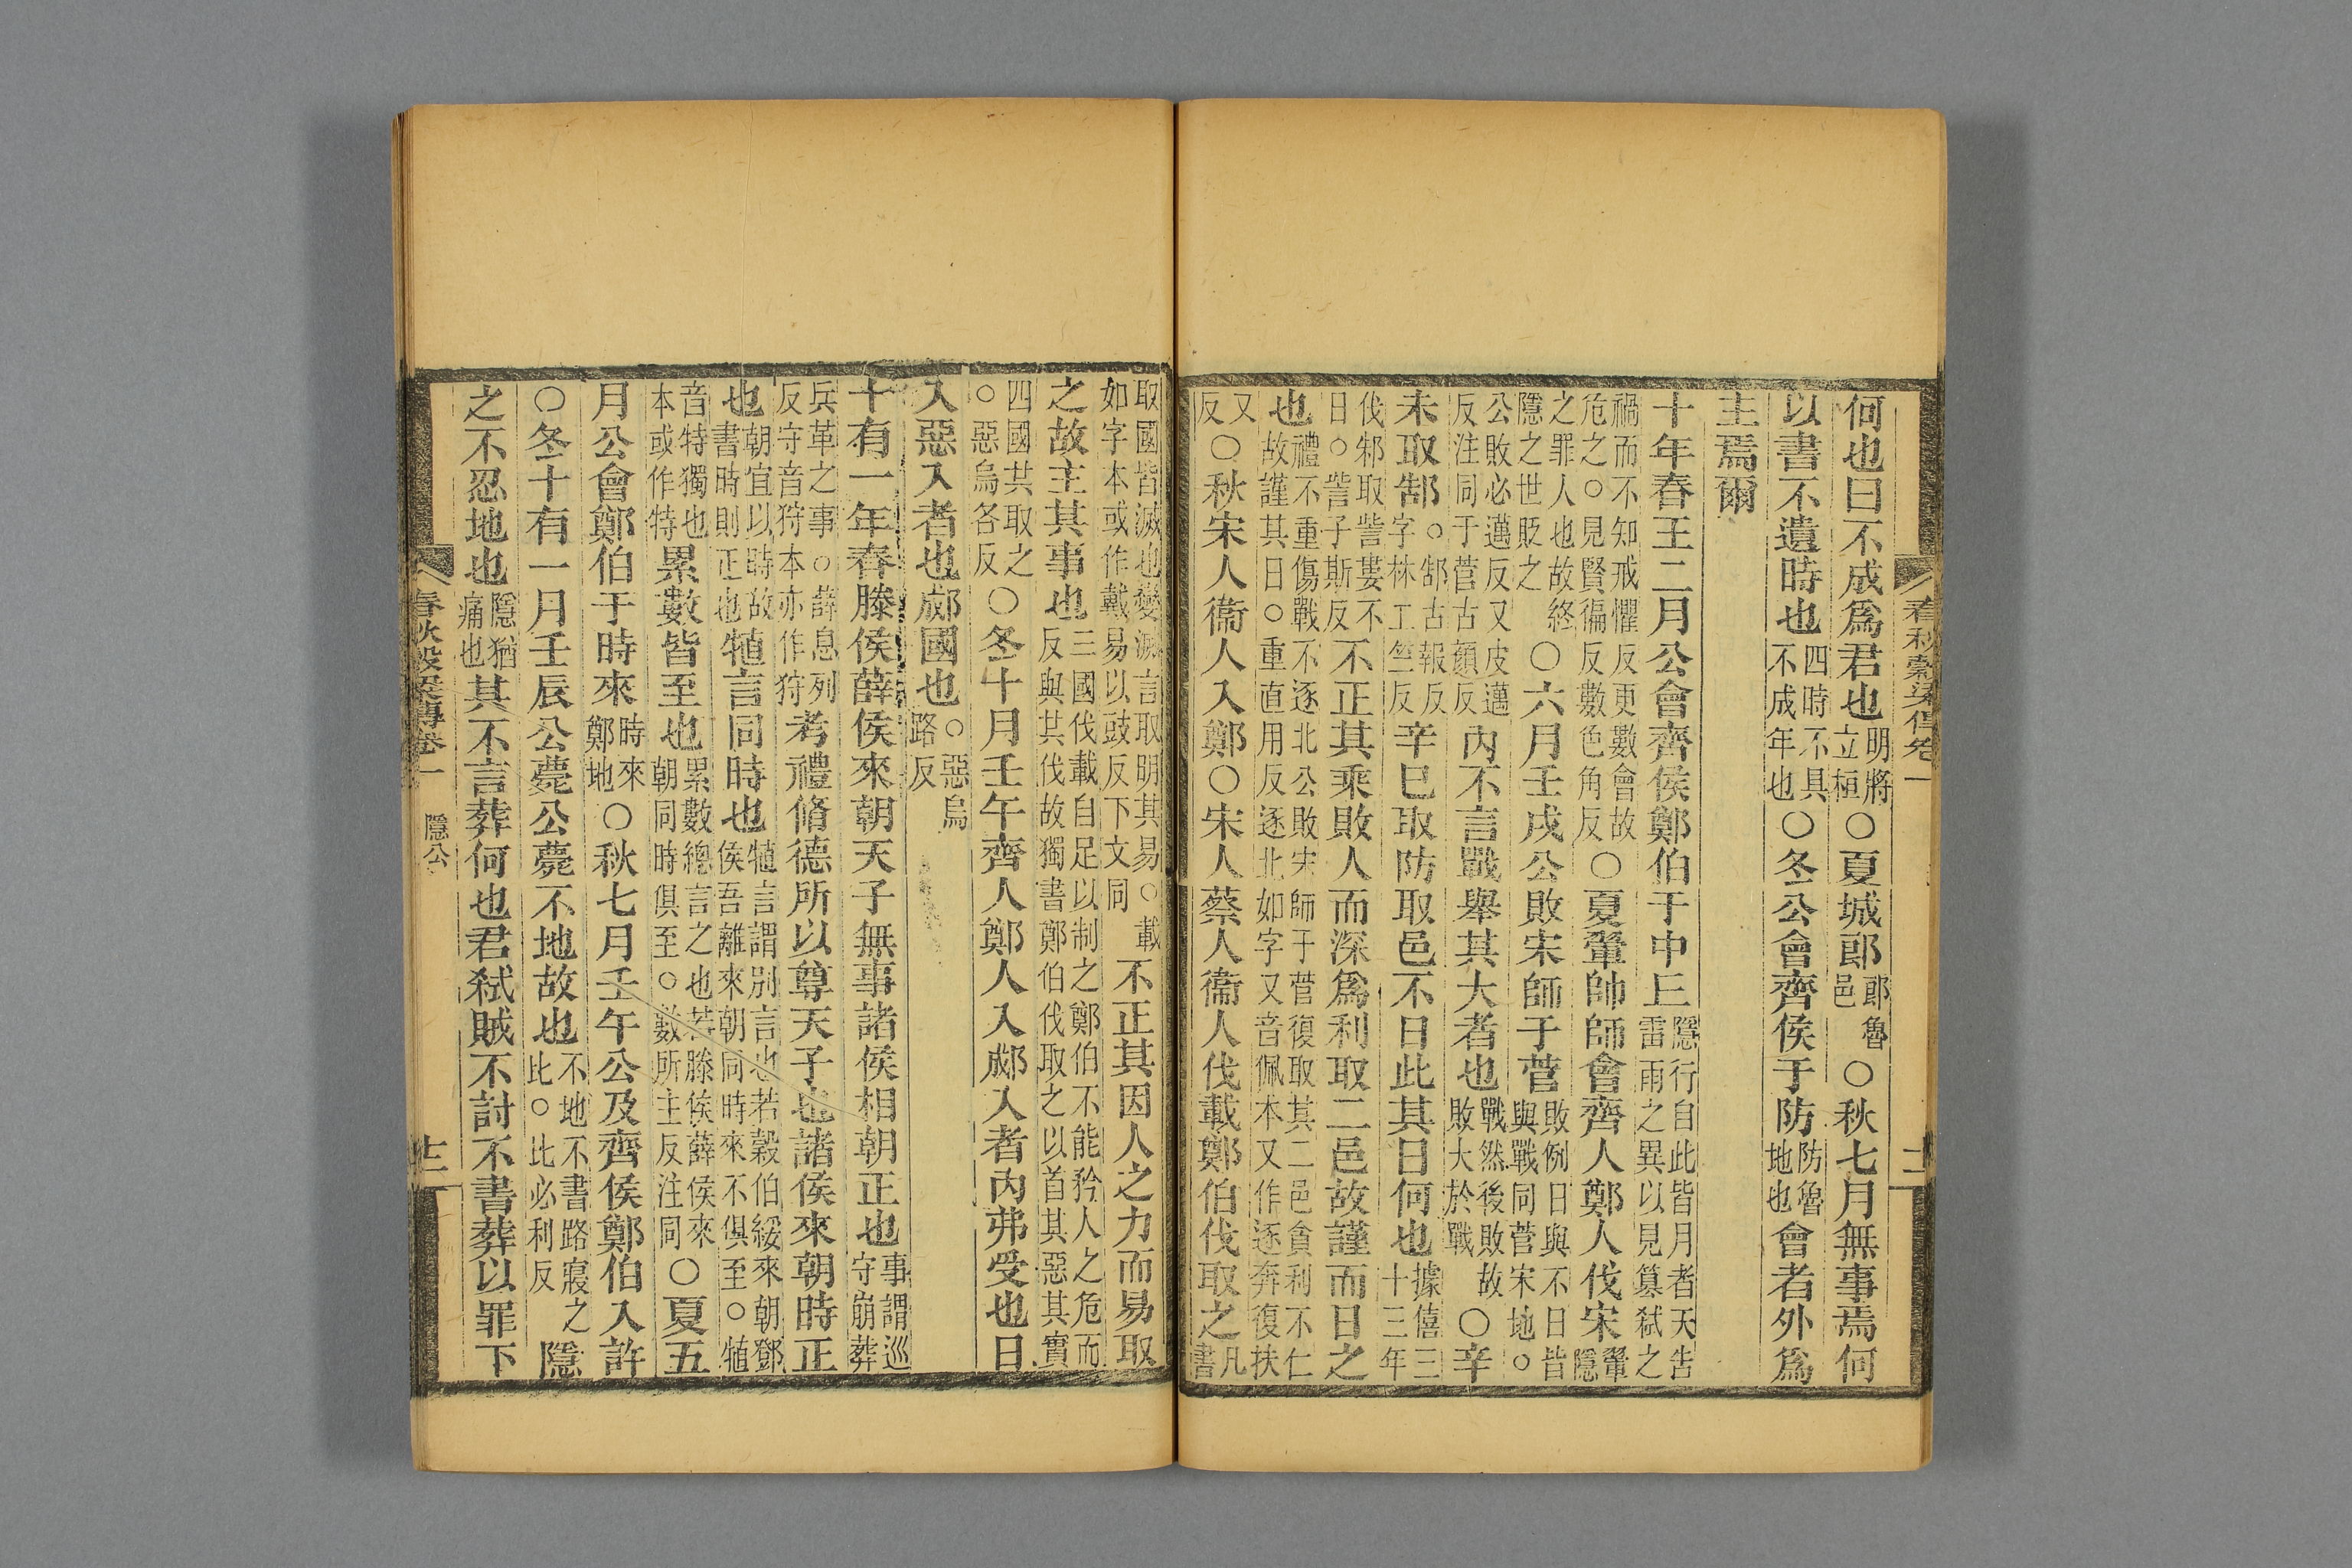 春秋穀梁傳卷一
何也曰不成爲君也明將立桓〇夏城郎郎魯邑〇秋七月無事焉何
以書不遺時也四時不具不成年也〇冬公會齊侯于防防魯地也會者外爲
主焉爾
十年春王二月公會齊侯鄭伯于中丘隱行自此皆月者天告雷雨之異以見篡弒之
禍而不知戒懼反更數會故危之○見賢徧反數色角反〇夏翬帥師會齊人鄭人伐宋翬隱
之罪人也故終隱之世貶之〇六月壬戌公敗宋師于菅敗例日與不日皆與戰同菅宋地○
公敗必邁反又皮邁反注同于菅古顏反內不言戰舉其大者也戰然後敗故敗大於戰〇辛
未取郜○郜古報反字林工竺反辛巳取防取邑不日此其日何也據僖三十三年
伐邾取訾婁不日○訾子斯反不正其乘敗人而深爲利取二邑故謹而日之
也禮不重傷戰不逐北公敗宋師于菅復取其二邑貪利不仁故謹其日○重直用反逐北如字又音佩本又作逐奔復扶
又反〇秋宋人衞人入鄭〇宋人蔡人衞人伐載鄭伯伐取之凡書
取國皆滅也變滅言取明其易○載如字本或作戴易以豉反下文同不正其因人之力而易取
之故主其事也三國伐載自足以制之鄭伯不能矜人之危而反與其伐故獨書鄭伯伐取之以首其惡其實
四國共取之○惡烏各反〇冬十月壬午齊人鄭人入郕入者內弗受也日
入惡入者也郕國也○惡烏路反
十有一年春滕侯薛侯來朝天子無事諸侯相朝正也事謂巡守崩葬
兵革之事○薛息列反守音狩本亦作狩考禮脩德所以尊天子也諸侯來朝時正
也朝宜以時故書時則正也犆言同時也犆言謂別言也若穀伯綏來朝鄧侯吾離來朝同時來不俱至○犆
音特獨也本或作特累數皆至也累數總言之也若滕侯薛侯來朝同時俱至○數所主反注同〇夏五
月公會鄭伯于時來時來鄭地〇秋七月壬午公及齊侯鄭伯入許
〇冬十有一月壬辰公薨公薨不地故也不地不書路寢之比○比必利反隱
之不忍地也隱猶痛也其不言葬何也君弒賊不討不書葬以罪下
春秋穀梁傳卷一 隱公